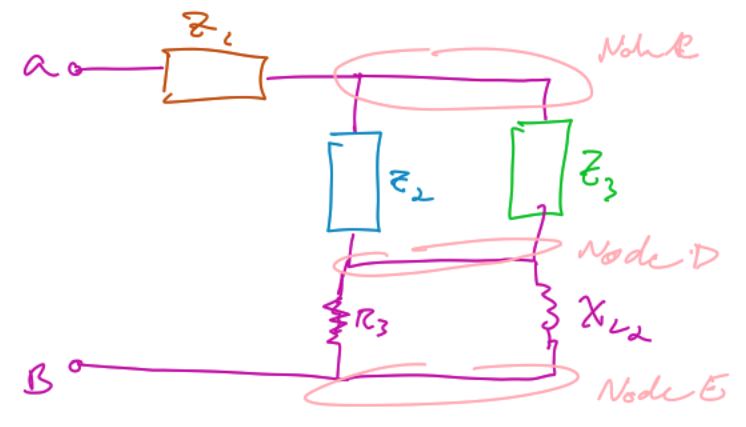 Z1
a
Node C
Z2
Z3
Node D
R3
XL2
B
Node E